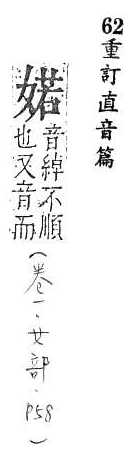 62重訂直音篇
婼
音綽不順
也又音而
(卷一·女部·P58)